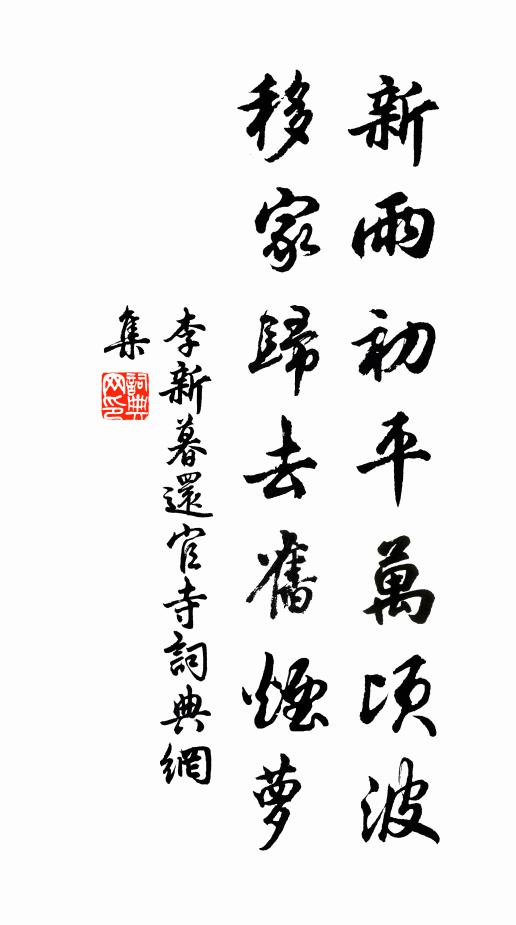 新雨初平萬頃波
移家歸去舊煙萝
李新暮還官寺詞典網
集
詞典
网印